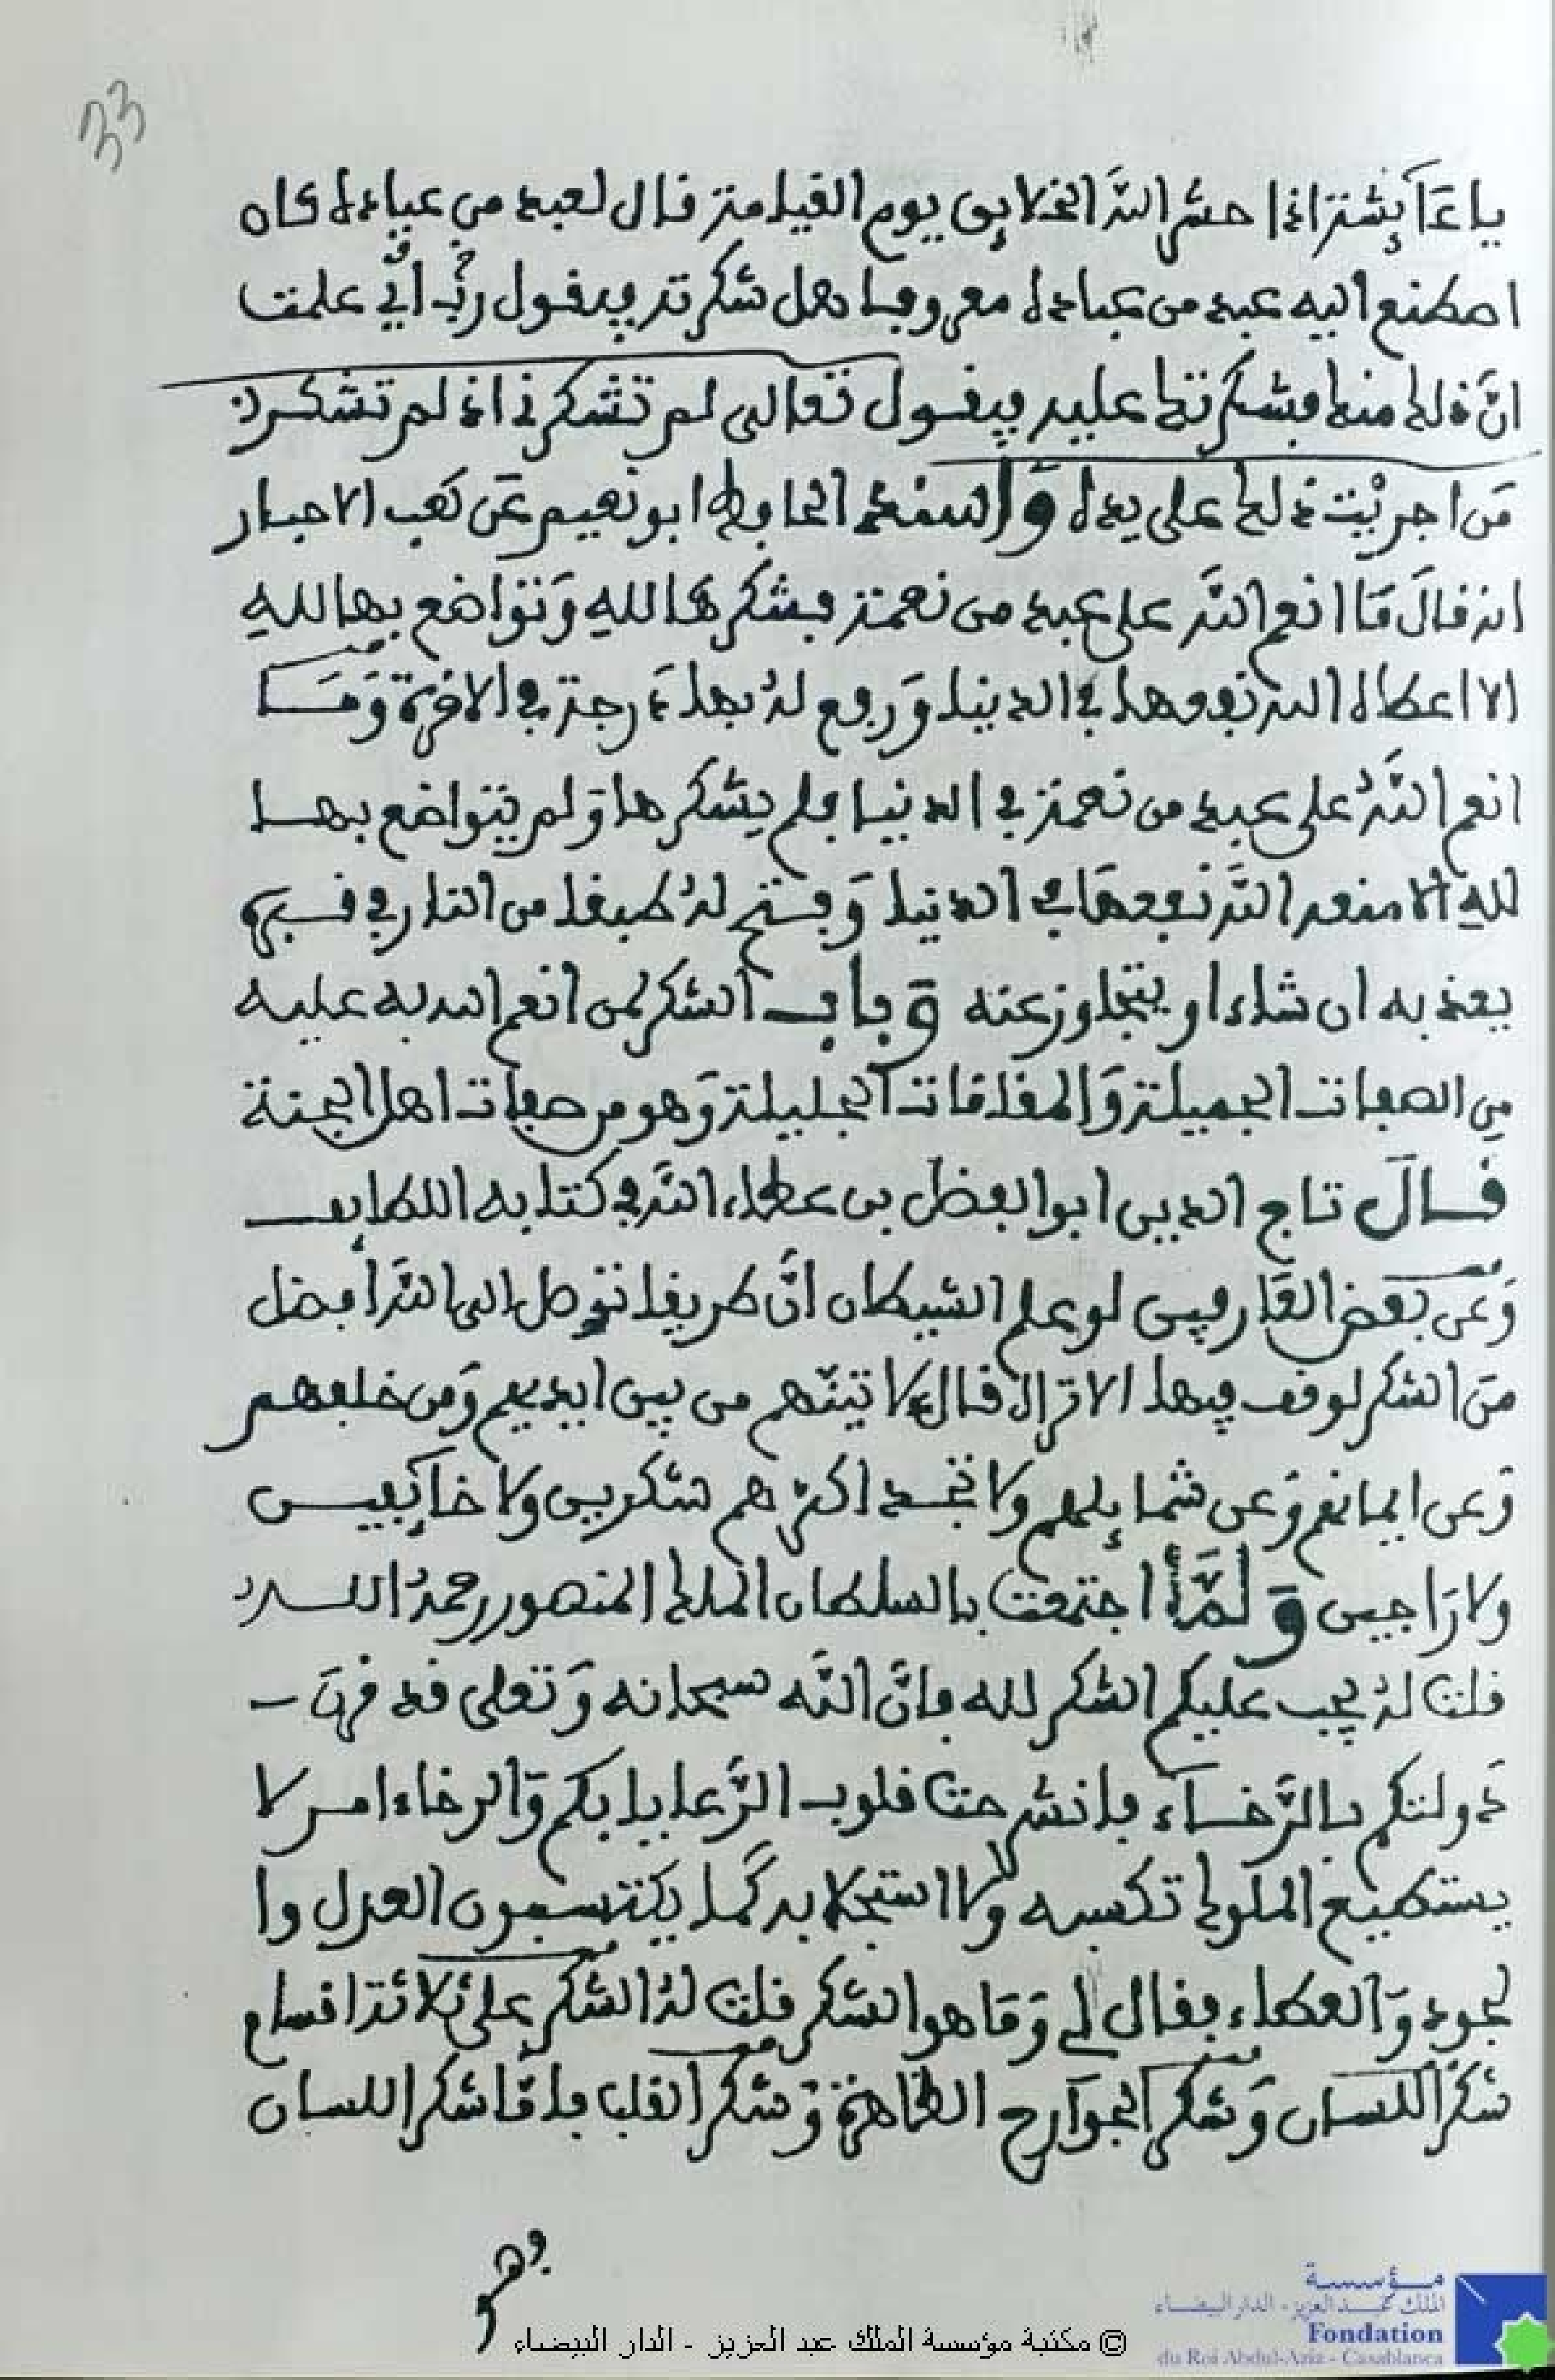 33
يا عَآئِشة اذا حشر اللَّه الخلايق يوم القيامة قال لعبد من عباده كان
اصطنع اليه عبد من عباده معروفا هل شكرته فيقول ربِّ انِّي علمت
انَّ ذلك منك فشكرتك عليه فيقول تعالى لم تشكرني اذ لم تشكر
مَن اجريْت ذلك على يده وَاسند الحافظ ابو نعيم عَن كعب الاحبار
انه قالَ مَا انعم اللَّه على عبد من نعمة فشكرهَا لله وَتواضع بها لله
الا اعطاه الله نفعها في الدنيا وَرفع لهُ بها دَرجة في الاخرة وَمَــا
انعم اللَّهُ على عبد من نعمة في الدنيا فلم يشكرها وَلم يتواضع بهــا
للهِ الا منعه اللَّه نفعهَا في الدنيا وَفتح لهُ طبقا من النار في قــبره
يعذبه ان شاء او يتجاوز عنه وَباب الشكر لمن انعم الله به عليه
مِن الصفات الجميلة وَالمقامات الجليلة وَهو من صفات اهل الجنة
قــالَ تاج الدين ابو الفضل بن عطاء اللَّه في كتابه اللطايف
وَعن بَعض العَارفين لو علم الشيطان انَّ طريقا توصل الى اللَّه أفضل
منَ الشكر لوقف فيها الا تراهُ قال لاتينّهم من بين ايديهم وَمن خلفهم
وَعن ايمانهم وَعن شمائلهم ولا تجــد اكثرهم شكرين ولا خآئفيــن
ولا رَاجين وَلَمَّا اجتمعت بالسلطان الملك المنصور رحمهُ اللــه
قلت لهُ يجب عليكم الشكر لله فانَّ اللَّه سبحانه وَتعلى قد قرنَ
دَولتكم بالرَّخــآء فانشرحت قلوب الرَّعايا بكم وَالرخاء امــر لا
يستطيع الملوك تكسبه ولا استجلابه كَما يكتسبون العدل وا
لجود وَالعطاء فقال لي وَمَا هو الشكر قلت لهُ الشكر على ثلاثة اقسام
شكرُ اللســان وَشكر الجوَارح الظاهرة وَشكر القلب فامَّا شكر اللسان
فهو
© مكتبة مؤسسة الملك عبد العزيز - الدار البيضاء
مــؤسسة
الملك عبد العزيز - الدار البيضــاء
Fondation
du Roi Abdul-Aziz - Casablanca